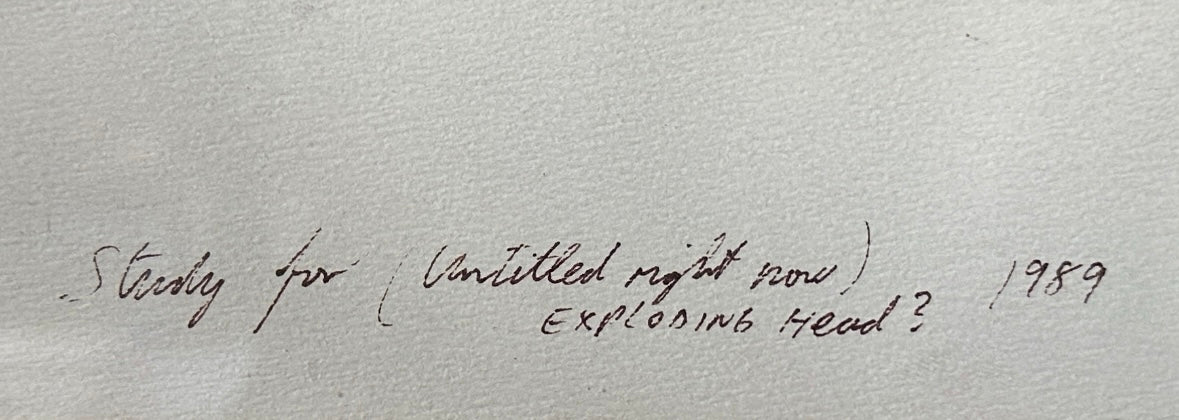 Study for (Untitled right now) 1989
EXPLODING Head?